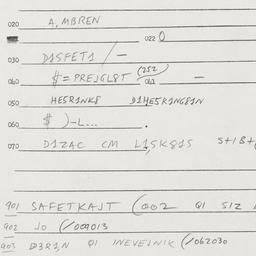 020 A, MBREN
022 0
030 D1SFET1 / —
040 $ = PREJGL8T (252 041 —
050 HE5R1NK8 D1HE5R1NG81N
060 $ ) –L... .
070 D1ZAC CM L1,5K81S S+1B+
901 SAFETKAJT (002 Q1 S1Z
902 JO (/009013
903 D3R1,N Q1 INEVEJNIK (/062030